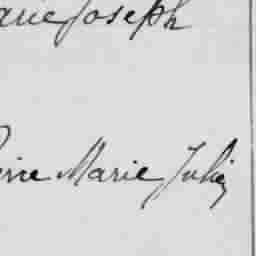 arie Joseph
erre Marie Julien